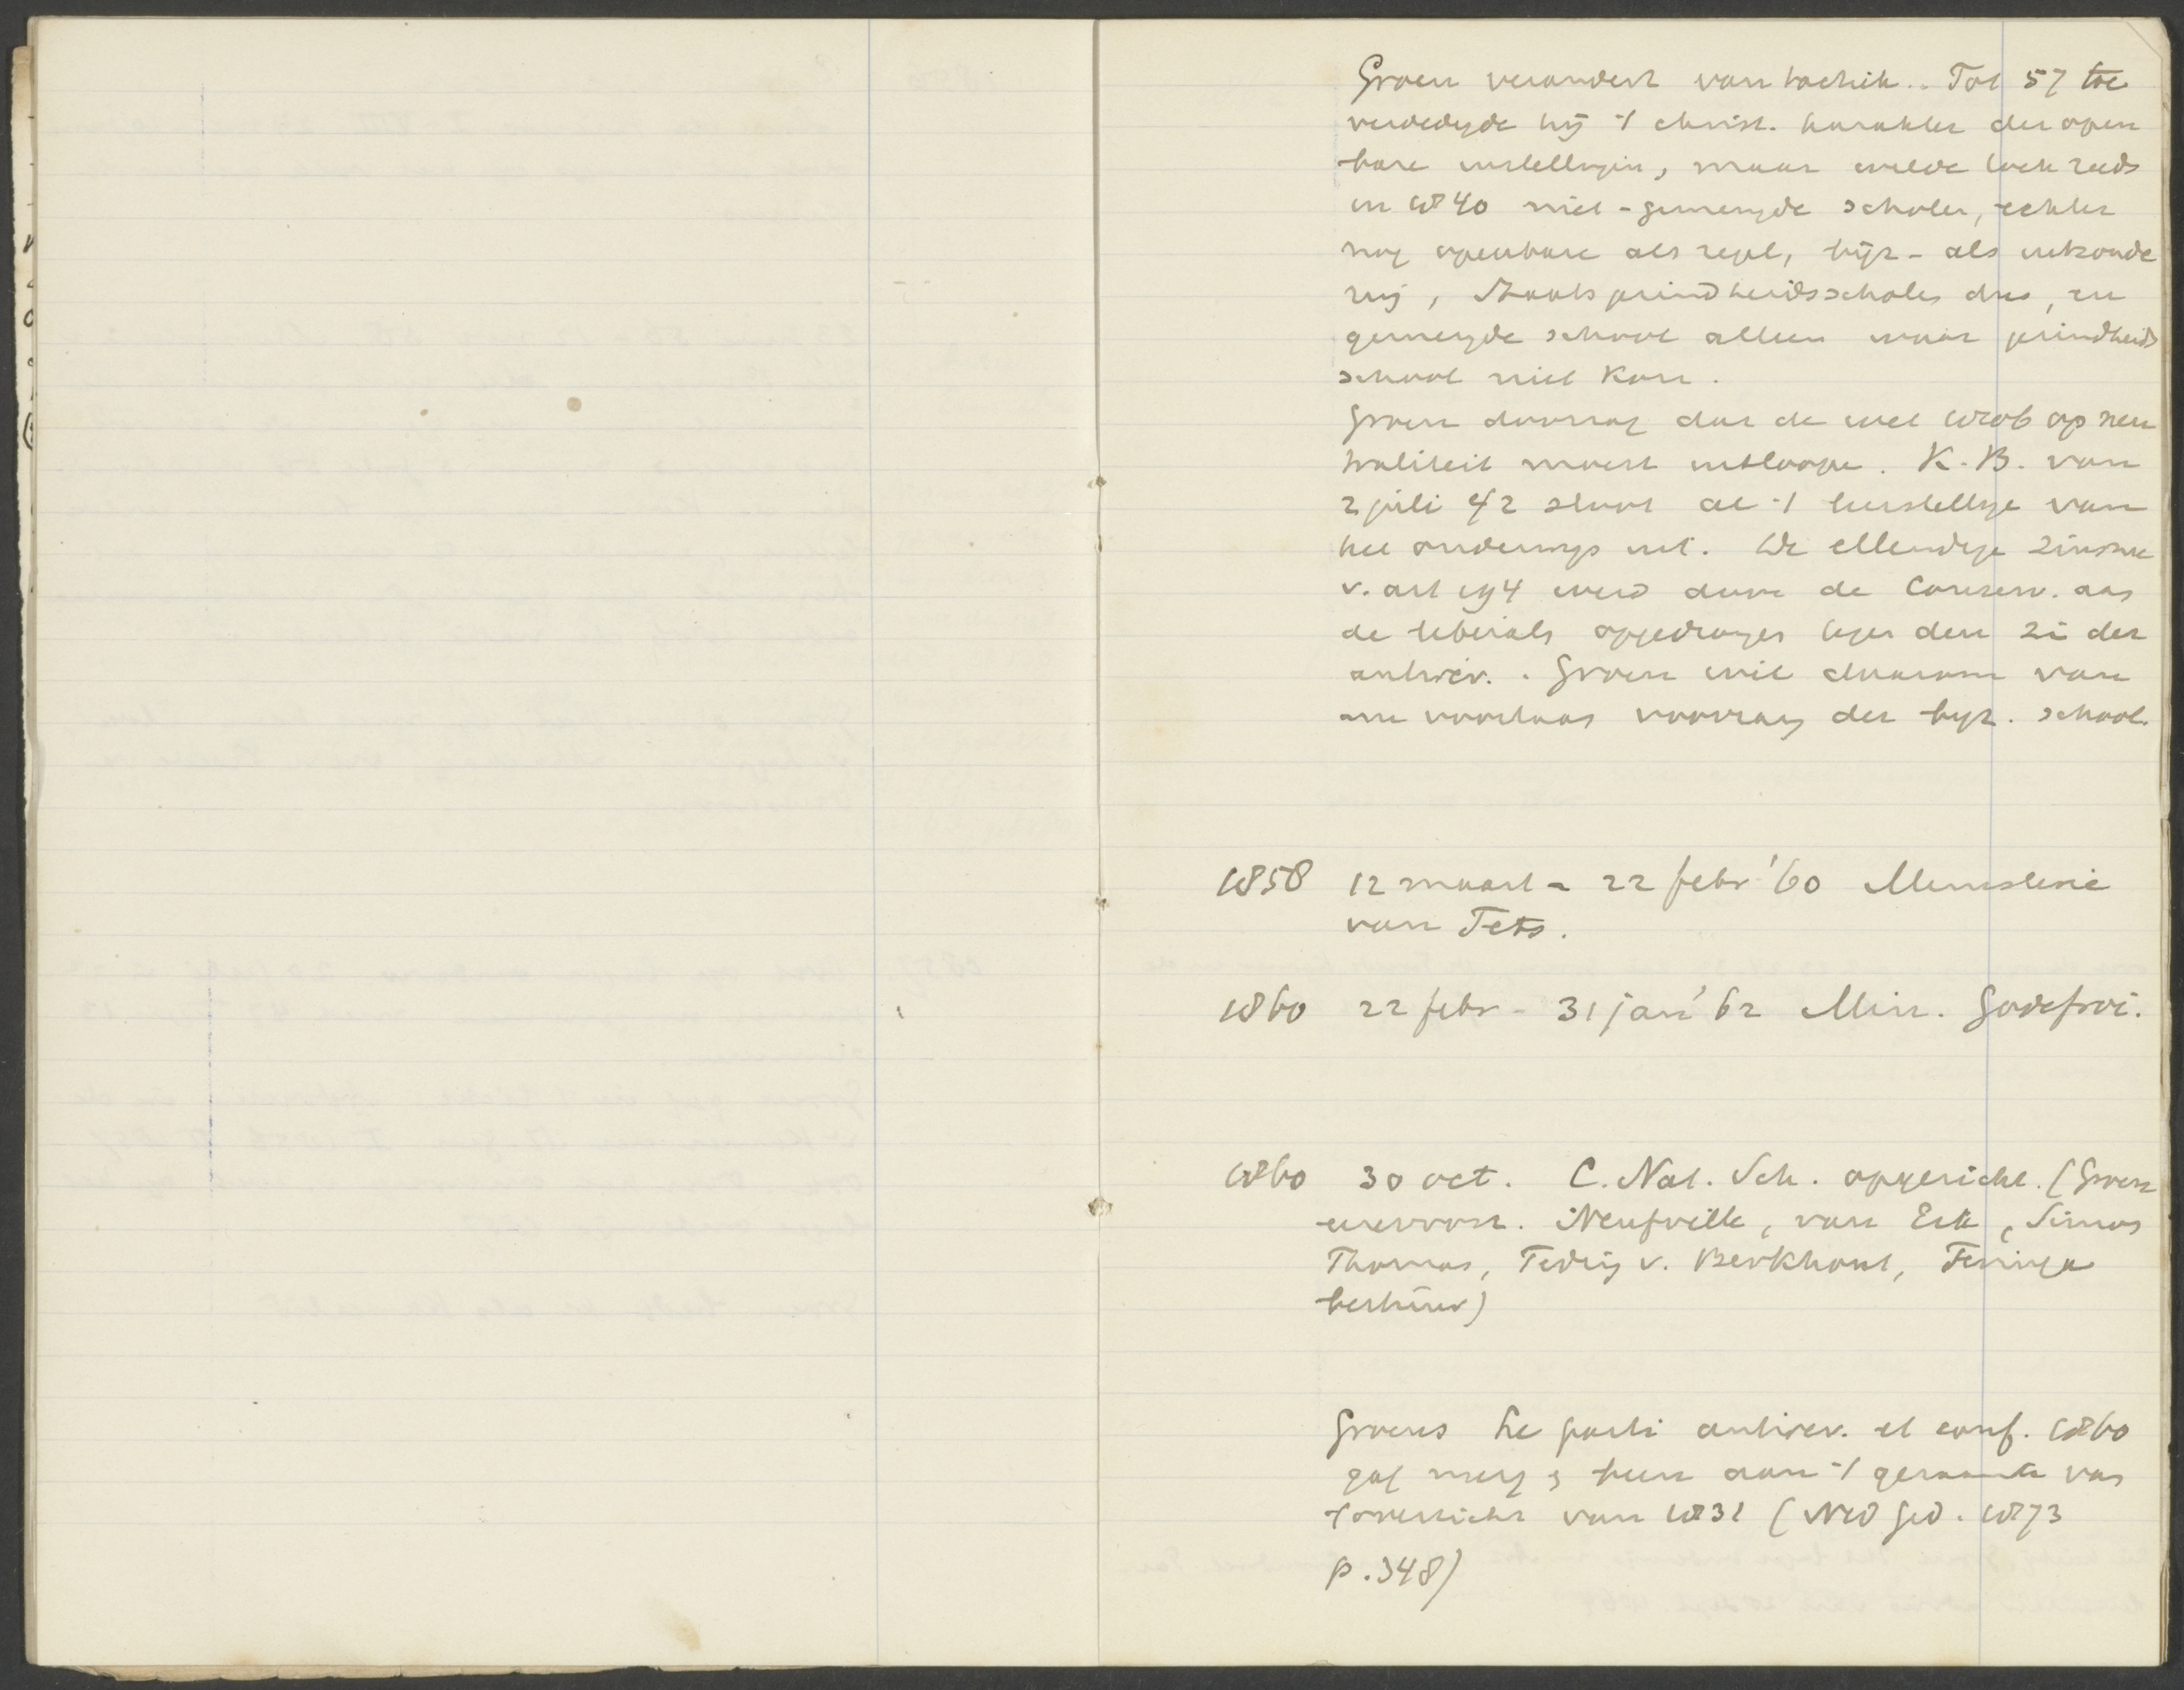 Groen verandert van tactiek.. Tot 57 toe
verdedigde hij 't christ. karakter der open
bare instellingen, maar wilde toch reeds
in 1840 niet-gemengde scholen, echter
nog openbare als regel, bijz- als uitzonde
ring, Staatsgezindheidsscholen dus, en
gemengde school alleen waar gezindheids
school niet kon.
Groen doorzag dat de wet 1806 op neu
traliteit moest uitloopen. K.B. van
2 juli 42 sloot al 't leerstellige van
het onderwijs uit. De ellendige zinsnee
v. art 194 werd door de Conserv. aan
de liberals opgedrongen tegen den zin der
antirev.. Groen wil daarom van
nu voortaan voorrang der bijz. school.
1858 12 maart - 22 febr '60 Ministerie
van Tets.
1860 22 febr - 31 jan '62 Min. Godefroi.
1860 30 oct. C. Nat. Sch. opgericht. (Groen
eerevoorz. Neufville, van Eik, Simons
Thomas, Teding v. Berkhout, Feringa
bestuur)
Groens Le parti antirev. et conf. 1860
gaf menigeen aan 't
't overzicht van 1831 (Ned Ged. 1873
p. 348)